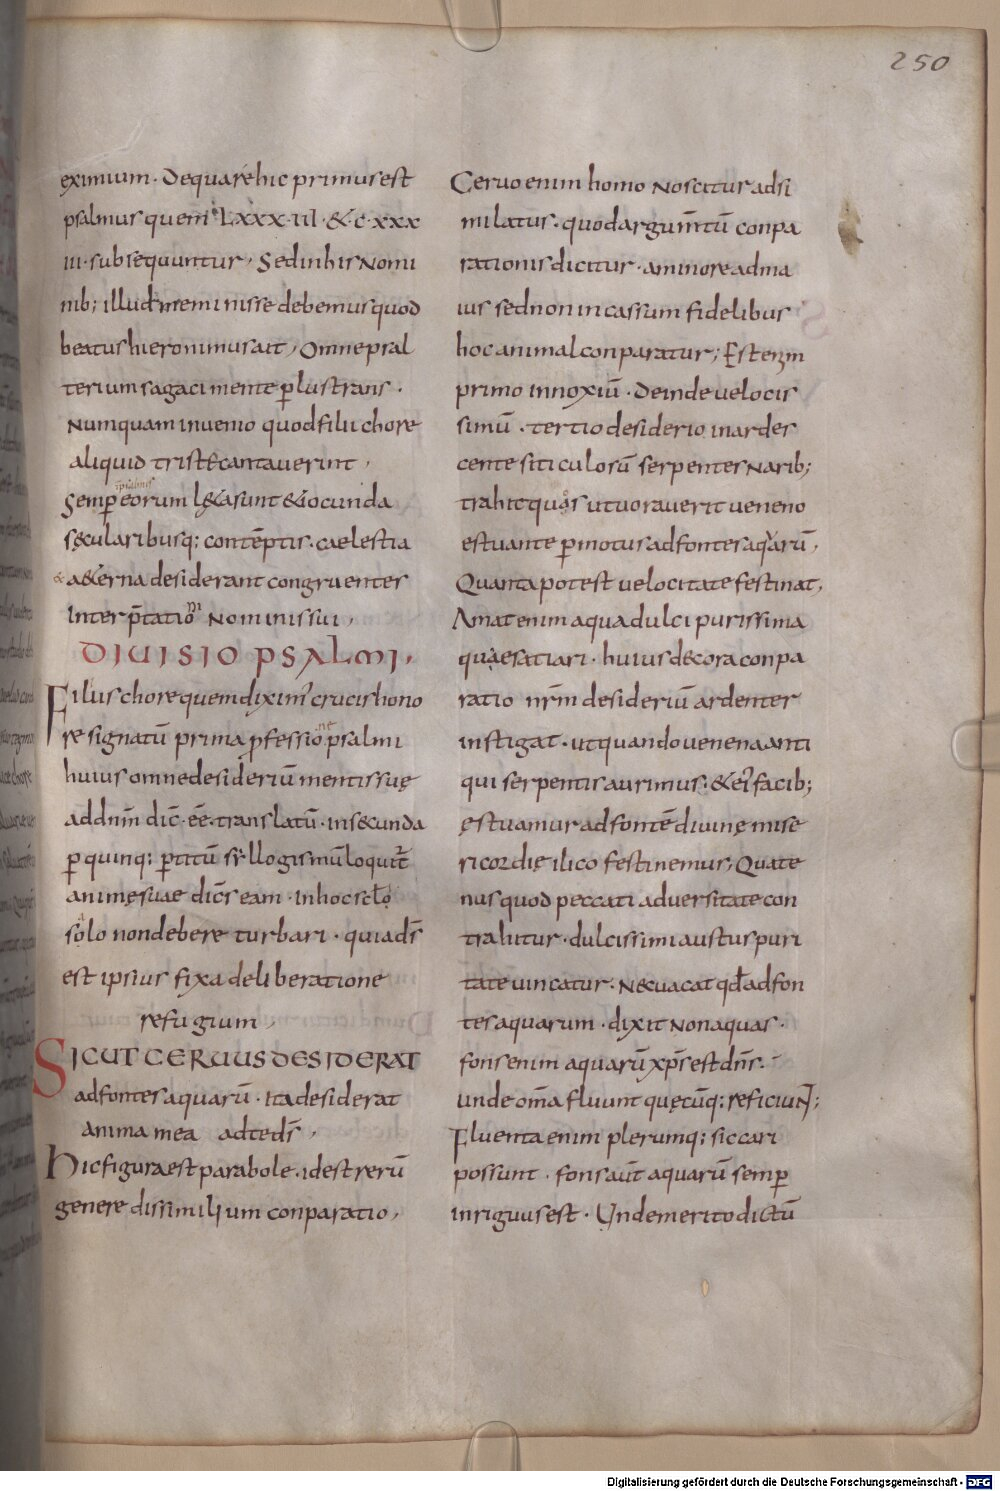 250
eximium. De quare hic primus est
psalmus quem LXXXIII. & C. XXX
III. subsequuntur, Sed in his nomi
nib; illud meminisse debemus quod
beatus hieronimus ait, Omne psal
terium sagaci mente p̄lustrans.
Numquam invenio quod filii chore
aliquid trist& cantaverint,
in psalmis
Semp̄ eorum l&a sunt & iocunda
sęcularibusq; contēptis. caelestia
& a&erna desiderant congruenter
Interp̄tationi nominis sui,
DIUISIO PSALMI.
Filius chore quem diximꝰ crucis hono
re signatū prima ꝓfessione psalmi
huius omne desideriū mentis suę
ad dn̄m dic̄. ēē. translatū. in secunda
p̄ quinq; p̄titū syllogismū loquit̄
animę suae dic̄s eam. in hoc sc̄lo
solo non debere turbari. quia d̄s
est ipsius fixa deliberatione
refugium,
SICUT CERUUS DESIDERAT
ad fontes aquarū. Ita desiderat
anima mea ad te d̄s,
Hic figura est parabole. id est rerū
genere dissimilium conparatio,
Ceruo enim homo noscitur adsi
milatus. quod argum̄tū conpa
rationis dicitur. a minore ad ma
ius sed non incassum fidelibus
hoc animal conparatur; Est enim
primo innoxiū. Deinde velocis
simū. tertio desiderio inardes
cente siticulosū serpentes narib;
trahit quos ut uorauerit ueneno
estuante p̄motus ad fontes aquarū,
Quanta potest velocitate festinat,
Amat enim aqua dulci purissima
quae satiari. huius decora conpa
ratio nr̄m desideriū ardenter
instigat. ut quando uenena anti
qui serpentis aurimus. & eiꝰ facib;
ęstuamur ad fontē divinę mise
ricordię ilico festinemus, Quate
nus quod peccati adversitate con
trahitur. dulcissimi austus puri
tate vincatur. Nec vacat qd̄ ad fon
tes aquarum. dixit non aquas.
fons enim aquarū xp̄s est dn̄s.
unde om̄a fluunt quęcūq; reficiunt;
Fluenta enim plerumq; siccari
possunt. fons aūt aquarū semp̄
inriguus est. Unde merito dictū
Digitalisierung gefördert durch die Deutsche Forschungsgemeinschaft - DFG